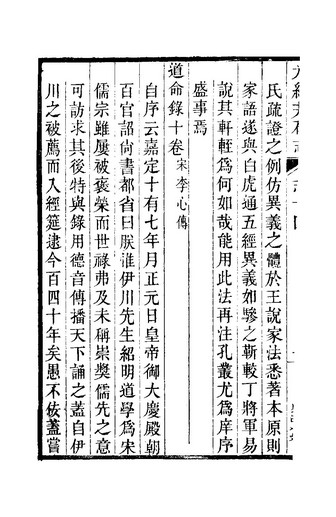 氏疏證之例仿異義之體於王說家法悉著本原則
家語遂與白虎通五經異義如驂之靳較丁將軍易
說其軒輊爲何如哉能用此法再注孔叢尤爲庠序
盛事焉
道命錄十卷宋李心傳
自序云嘉定十有七年月正元日皇帝御大慶殿朝
百官詔尚書都省曰朕惟伊川先生紹明道學爲宋
儒宗雖屢被褒榮而世祿弗及未稱崇奬儒先之意
可訪求其後特與錄用德音傳播天下誦之蓋自伊
川之被薦而入經筵逮今百四十年矣愚不佞蓋嘗